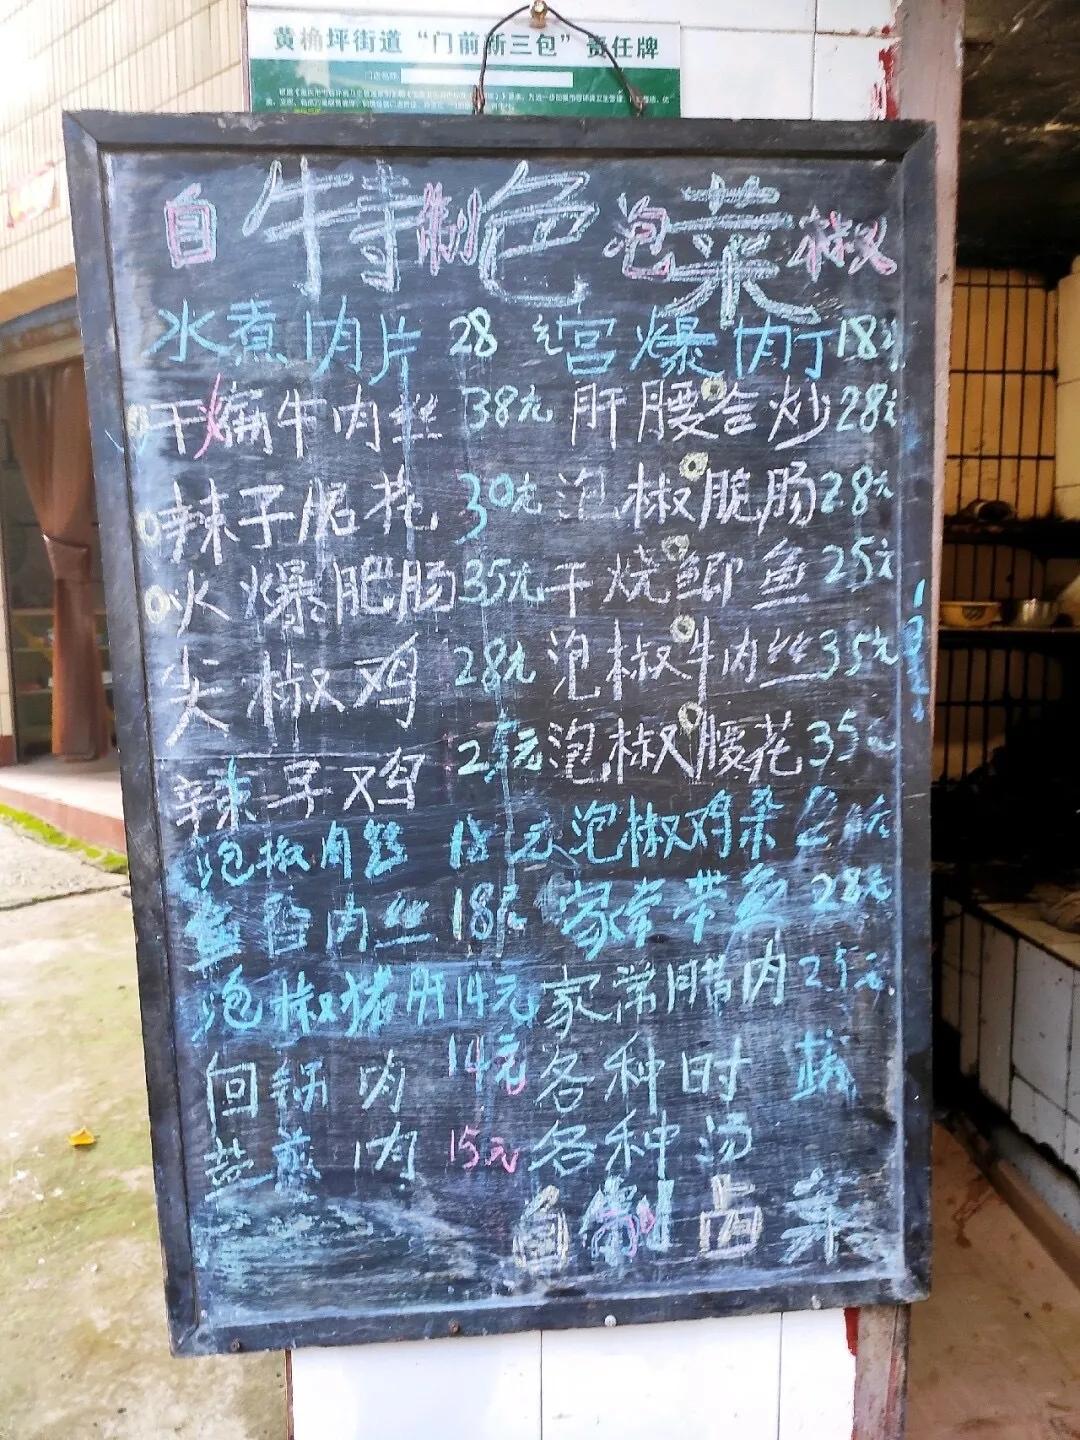 黄桷坪街道“门前新三包”责任牌
门店名称
特色菜
自制泡椒
水煮肉片 28元 宫爆肉丁 18元
干煸牛肉丝 38元 肝腰合炒 28元
辣子肥花 30元 泡椒脆肠 28元
火爆肥肠 35元 干烧鲫鱼 25元
尖椒鸡 28元 泡椒牛肉丝 35元
辣子鸡 25元 泡椒腰花 35元
泡椒肉丝 18元 泡椒鸡杂
鱼香肉丝 18元 家常带鱼 28元
泡椒猪肝 14元 家常腊肉 25元
回锅肉 14元 各种时蔬
盐煎肉 15元 各种汤
自制卤菜